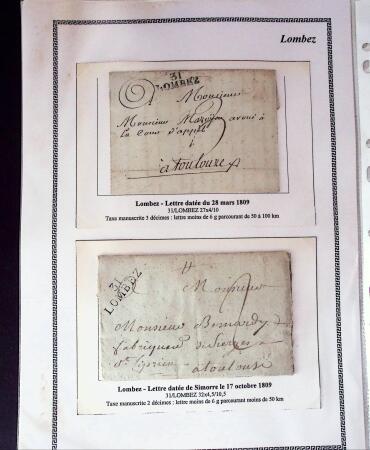 Lombez
31
LOMBEZ
A Monsieur
Monsieur avoué à
la Cour d'appel
à
à Toulouse
Lombez - Lettre datée du 28 mars 1809
31/LOMBEZ 27x4/10
Taxe manuscrite 3 décimes : lettre moins de 6 g parcourant de 50 à 100 km
31
LOMBEZ
A Monsieur
Monsieur
fabriquant de
St Cyprien
à toulouse
Lombez - Lettre datée de Simorre le 17 octobre 1809
31/LOMBEZ 32x4,5/10,5
Taxe manuscrite 2 décimes : lettre moins de 6 g parcourant moins de 50 km